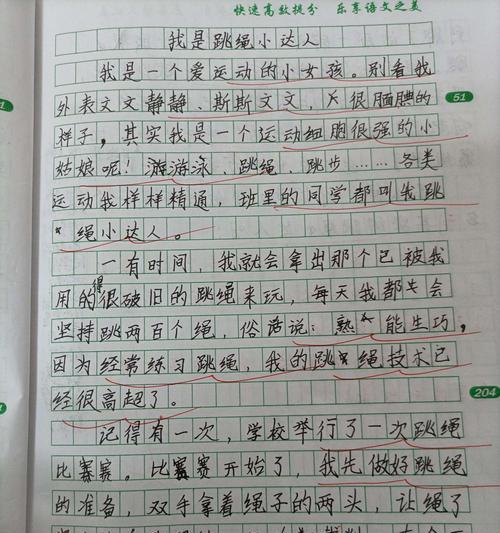 快速高效提分 乐享语文之美
我是跳绳小达人
我是一个爱运动的小女孩。别看我
外表文文静静、斯斯文文,很腼腆的
51
样子,其实我是一个运动细胞很强的小
姑娘呢!游游泳、跳绳、跳步……各类
运动我样样精通,班里的同学都叫我跳
绳小达人。
一有时间,我就会拿出那个已被我
用的得很破旧的跳绳来玩,每天我都会
坚持跳两百个绳,俗话说:熟能生巧,
因为经常练习跳绳,我的跳绳技术已
经很高超了。
204
记得有一次,学校举行了一次跳绳
比赛赛。比赛赛开始了,我先做好跳绳
的准备,双手拿着绳子的两头,让绳了